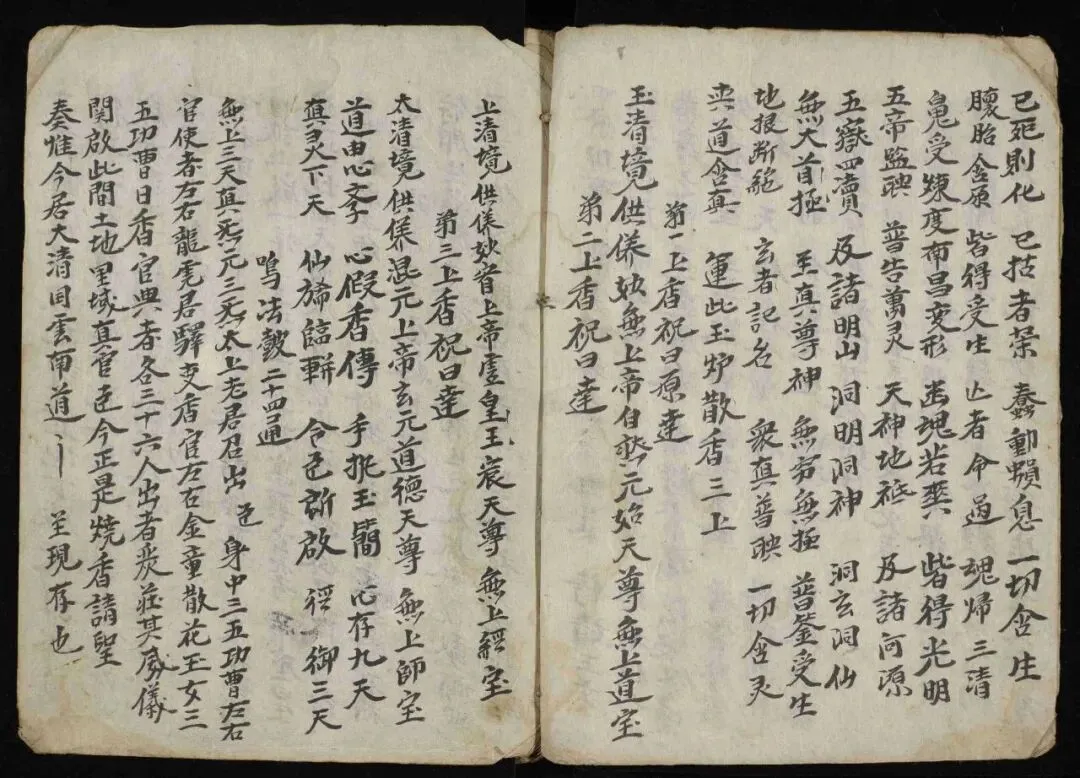 已死則化 已枯者荣 蠢動蝡息 一切含生
胞胎含屍 皆得受生 亾者命過 魂帰三清
鬼受煉度南昌变形 幽魂若爽 皆得光明
五帝監映 普告萬灵 天神地祗 及諸河源
五嶽四瀆 及諸明山 洞明洞神 洞玄洞仙
無大首極 至真尊神 無穷無極 普鉴受生
地根断絕 玄者記名 衆真普映 一切含灵
爽道含真 運此玉炉散香三上
第一上香祝曰原達
玉清境供保妙無上帝自然元始天尊無上道宝
第二上香祝曰達
上清境供保妙首上帝虚皇玉宸天尊 無上經宝
第三上香祝曰達
太清境供保混元上帝玄元道德天尊 無上師宝
道由心孝 心假香傳 手执玉簡 心存九天
真灵下天 仙旆臨軿 令臣所啟 径御三天
鳴法鼓二十四通
無上三天真炁元三炁太上老君召出 臣 身中三五功曹左右
官使者左右龍虎居驛吏香官左右金童散花玉女三
五功曹日香官典者各三十六人出者炭莊其威儀
関啟此間土地里域真官臣今正是燒香請聖
奏惟今居大清囯雲南道 呈現存也